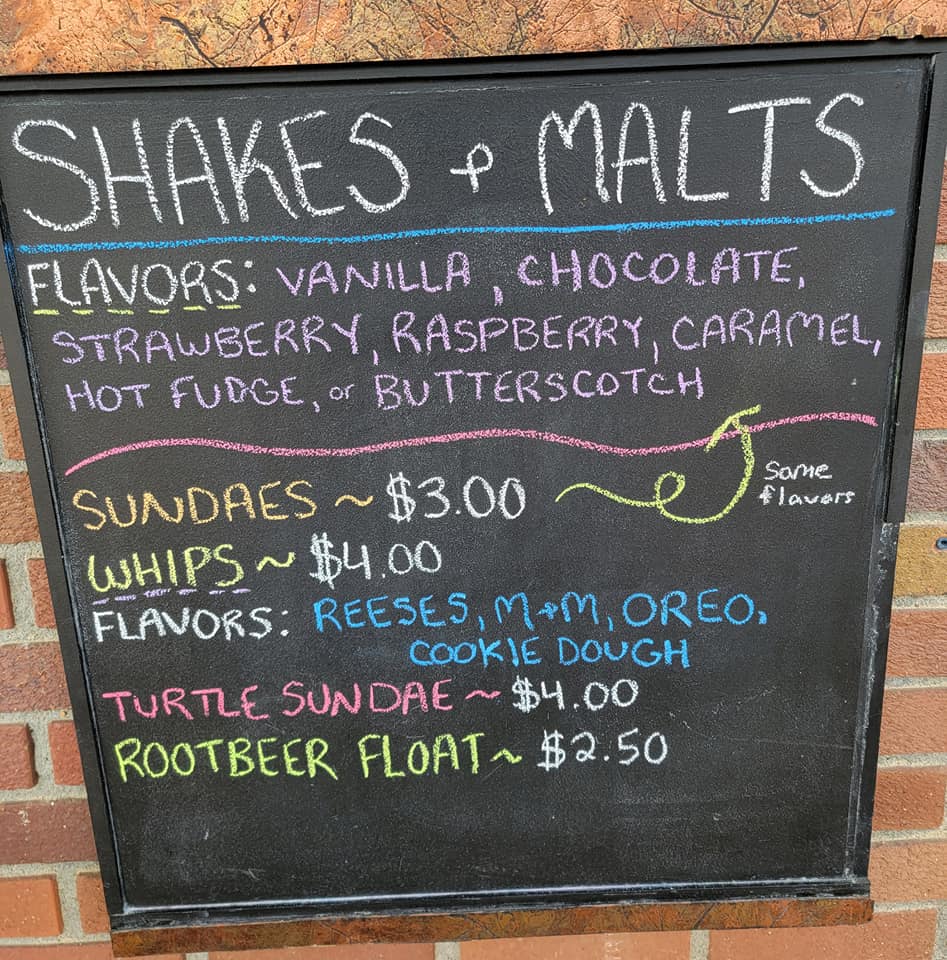 SHAKES & MALTS
FLAVORS: VANILLA, CHOCOLATE,
STRAWBERRY, RASPBERRY, CARAMEL,
HOT FUDGE, or BUTTERSCOTCH
SUNDAES ~ $3.00
Same
flavors
WHIPS ~ $4.00
FLAVORS: REESES, M&M, OREO,
COOKIE DOUGH
TURTLE SUNDAE ~ $4.00
ROOTBEER FLOAT ~ $2.50